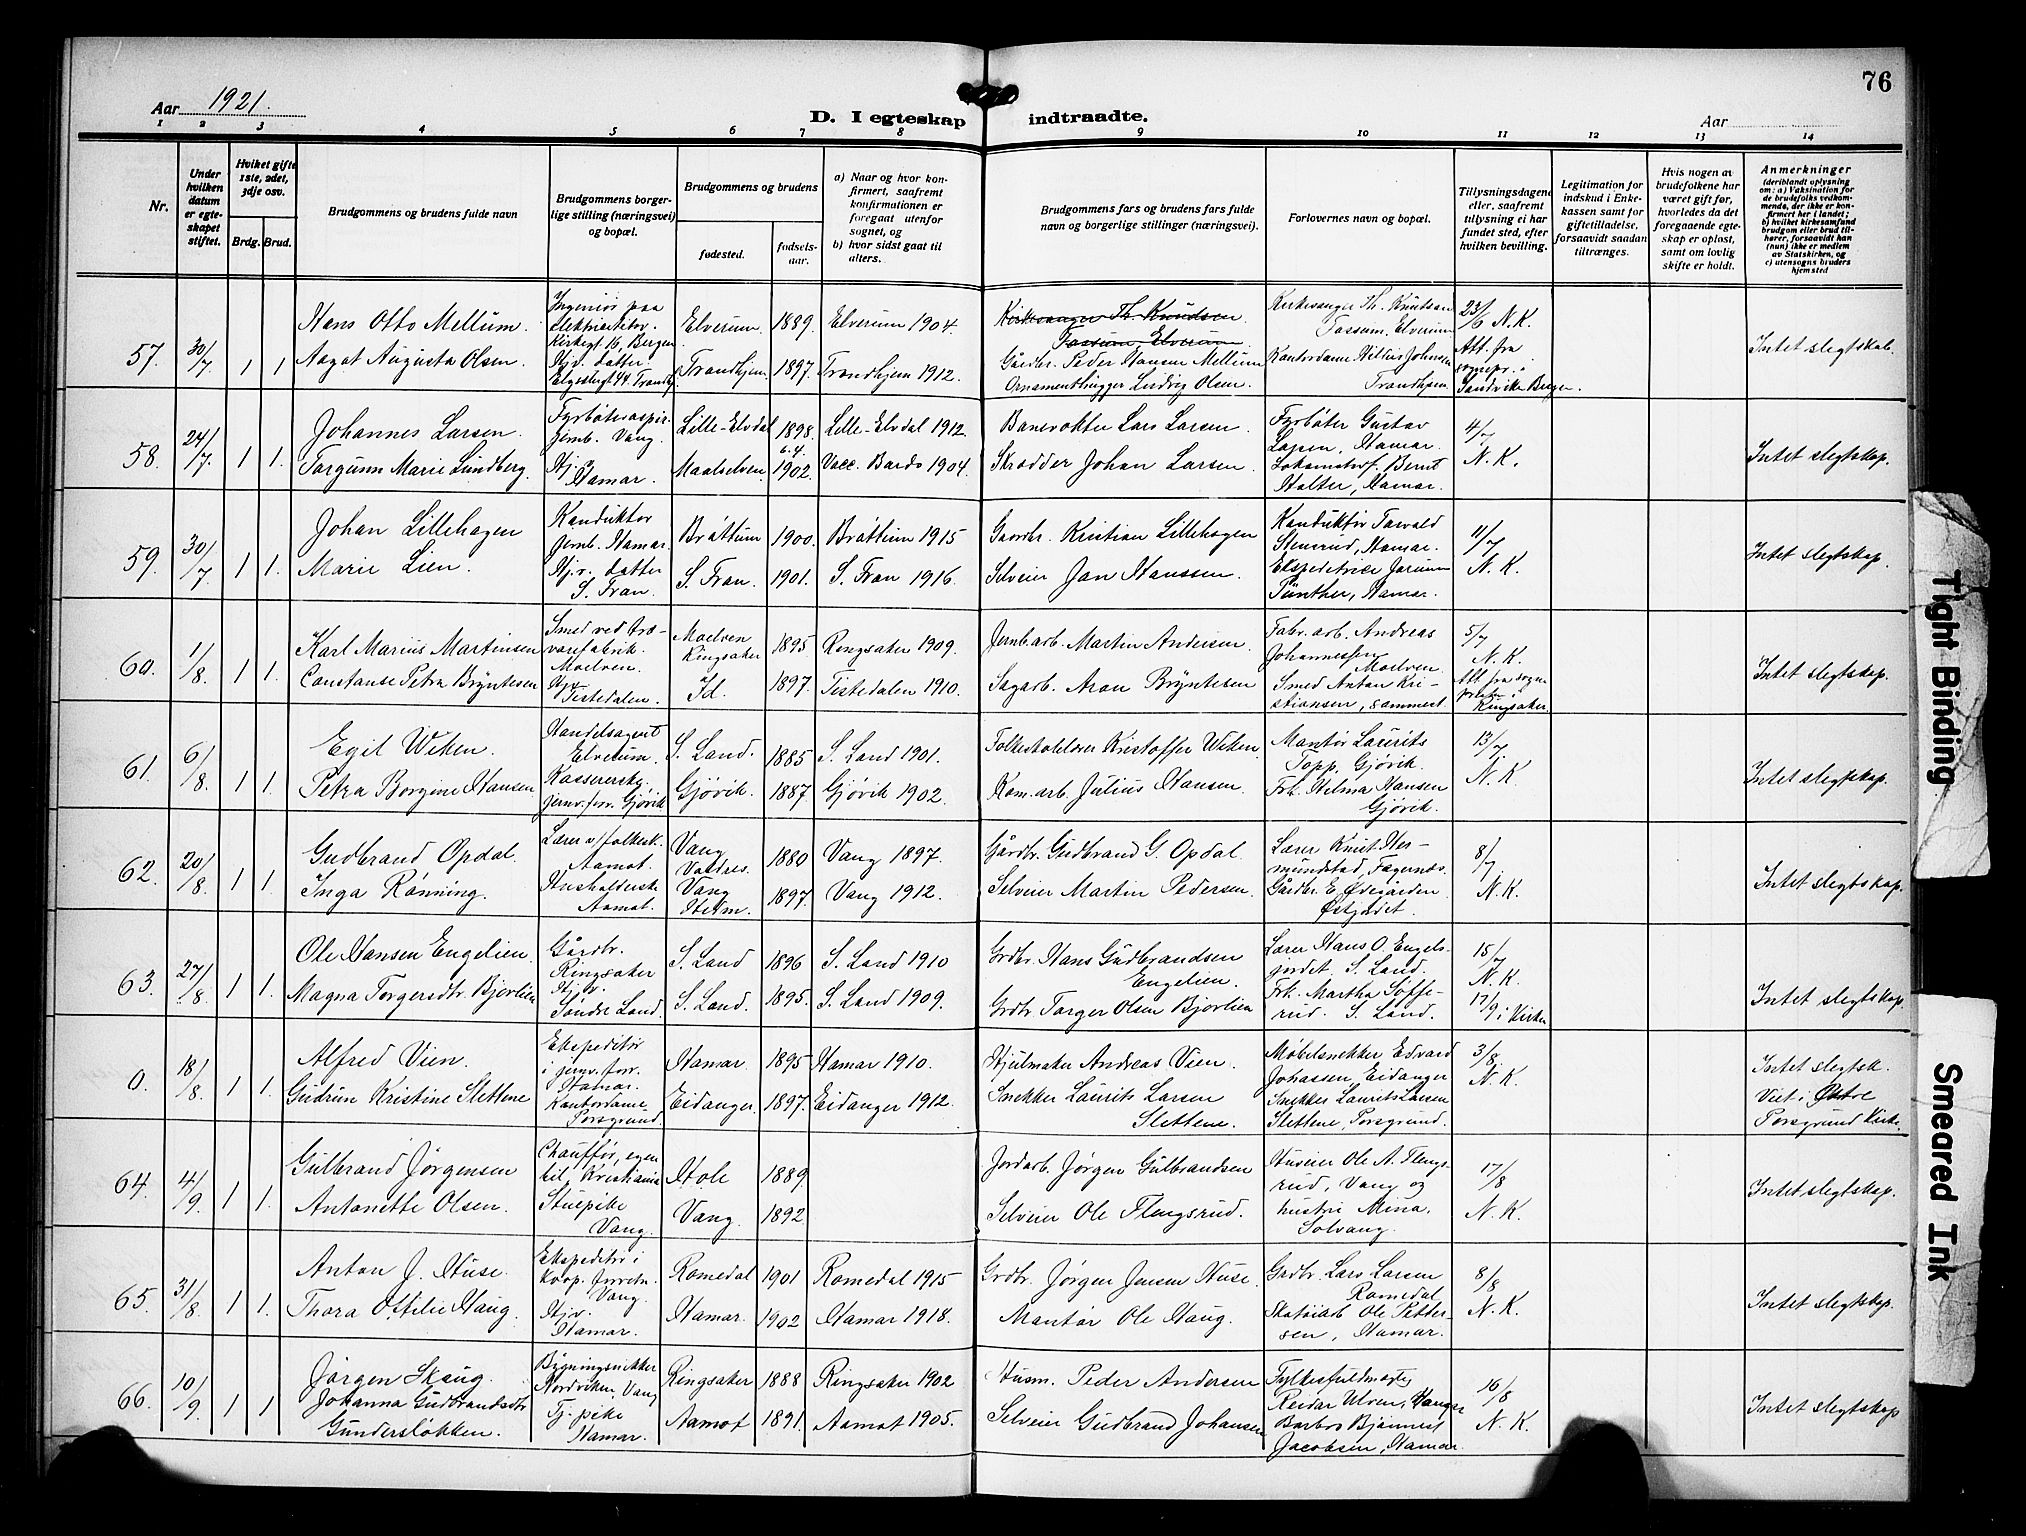 76
Aar 1921.
D. I egteskap indtraadte.
Aar
1 2 3 4 5 6 7 8 9 10 11 12 13 14
Nr.
Under hvilken datum er egteskapet stiftet.
Hvilket gifte 1ste, 2det, 3dje osv.
Brdg. Brud.
Brudgommens og brudens fulde navn
Brudgommens borgerlige stilling (næringsvei) og bopæl.
Brudgommens og brudens
fødested.
fødselsaar.
a) Naar og hvor konfirmert, saafremt konfirmationen er foregaat utenfor sognet, og
b) hvor sidst gaat til alters.
Brudgommens fars og brudens fars fulde navn og borgerlige stillinger (næringsvei).
Forlovernes navn og bopæl.
Tillysningsdagene eller, saafremt tillysning ei har fundet sted, efter hvilken bevilling.
Legitimation for indskud i Enkekassen samt for giftetilladelse, forsaavidt saadan tiltrænges.
Hvis nogen av brudefolkene har været gift før, hvorledes da det foregaaende egteskap er opløst, samt om lovlig skifte er holdt.
Anmerkninger
(deriblandt oplysning om: a) Vaksination for de brudefolks vedkommende, der ikke er konfirmert her i landet;
b) hvilket kirkesamfund brudgom eller brud tilhører, forsaavidt han (hun) ikke er medlem av Statskirken, og
c) utensogns bruders hjemsted
57. 30/7 1 1
Hans Otto Mellum.
Aagot Augusta Olsen.
Ingeniør paa
Kirkegt. 16, Bergen
Hjv. datter
Elverum. 1889. Elverum 1904.
Trondhjem. 1897. Trondhjem 1912.
Kirkesanger Th. Knudsen.
Tassum, Elverum
Gårdbr. Peder Hansen Mellum
Ornamenthugger Ludvig Olsen.
Kirkesanger Th. Knudsen
Tassum, Elverum
Kontordame Hilkus Johnsen
Trondhjem.
23/6 N.K.
Att. fra
sognepr. i
Sandviken Bergen.
Intet slegtskab.
58. 24/7. 1 1.
Johannes Larsen.
Torgunn Marie Lundberg.
Fyrbøteraspir.
Jernb. Vang.
Hj.v.
Hamar.
Lille-Elvdal 1898. Lille-Elvdal 1912.
Maalselven. 6.4. 1902. Vacc. Bardo 1904.
Banevokter Lars Larsen.
Skrædder Johan Larsen.
Fyrbøter Gustav
Larsen, Hamar.
Lokomotivf. Bernt
Holter, Hamar.
4/7
N.K.
Intet slegtskap.
59. 30/7 1 1.
Johan Lillehagen
Marie Lien.
Konduktør
Jernb. Hamar.
Hjv. datter
S. Fron.
Brøttum 1900. Brøttum 1915
S. Fron. 1901. S. Fron 1916.
Gaardbr. Kristian Lillehagen
Selveier Jon Hanssen.
Konduktør Torvald
Stensrud, Hamar.
Ekspeditrice Jorunn
Günther, Hamar.
11/7
N.K.
Intet slegtskap.
60. 1/8. 1 1.
Karl Marius Martinsen
Constanse Petra Bryntesen
Smed ved træ-
varefabrik.
Moelven.
Hjv.
Tistedalen.
Moelven
Ringsaker 1895 Ringsaker 1909.
Id. 1897. Tistedalen 1910.
Jernb.arb. Martin Andersen.
Sagarb. Aron Bryntesen
Fabr. arb. Andreas
Johannessen
Moelven.
Smed Anton Kri-
stiansen, sammest.
5/7
N.K.
Att. fra sogne
presten i
Ringsaker.
Intet slegtskap.
61. 6/8. 1 1.
Egil Wiken.
Petra Borgine Hansen
Handelsagent
Elverum.
Kassererske
jernv.forr. Gjøvik
S. Land. 1885 S. Land 1901.
Gjøvik. 1887. Gjøvik 1902.
Folkeskolelærer Kristoffer Wiken.
Kom.arb. Julius Hansen.
Montør Laurits
Topp, Gjøvik.
Frk. Helma Hansen
Gjøvik.
13/7.
N.K.
Intet slegtskap.
62. 20/8. 1 1.
Gudbrand Opdal.
Inga Rønning.
Lærer v/folkesk.
Aamot.
Husholderske
Aamot.
Vang
Valdres. 1880 Vang 1897.
Vang
Hedm. 1897. Vang 1912.
Gårdbr. Gudbrand G. Opdal.
Selveier Martin Pedersen.
Lærer Knut Her-
mundstad, Fagernes.
Gårdbr. E. Ødegården
8/7
N.K.
Intet slegtskap.
63. 27/8. 1 1.
Ole Hansen Engelien.
Magna Torgersdtr. Bjørlien
Gårdbr.
Ringsaker
Hjv.
Søndre Land.
S. Land 1896 S. Land 1910
S. Land. 1895. S. Land 1909.
Grdbr. Hans Gudbrandsen
Engelien.
Grdbr Torger Olsen Bjørlien
Lærer Hans O. Engels-
jordet. S. Land.
Frk. Martha Søffe-
rud. S. Land.
15/7
N.K.
17/9 i Kirken
Intet slegtskap.
0. 18/8. 1 1.
Alfred Vien.
Gudrun Kristine Slettene
Ekspeditør
i jernv. forr.
Hamar.
Kontordame
Porsgrund.
Hamar 1895 Hamar 1910.
Eidanger. 1897. Eidanger 1912.
Hjulmaker Andreas Vien.
Snekker Laurits Larsen
Slettene.
Møbelsnekker Edvard
Johassen, Eidanger
Snekker Laurits Larsen
Slettene, Porsgrund.
3/8.
N.K.
Intet slegtsk.
Viet i Østre
Porsgrund Kirke.
64. 4/9. 1 1.
Gulbrand Jørgensen
Antonette Olsen.
Chauffør, egen
bil, Kristiania
Stuepike
Vang.
Hole 1889.
Vang. 1892.
Jordarb. Jørgen Gulbrandsen
Selveier Ole Flengsrud.
Husveier Ole A. Flengs-
rud, Vang og
hustru Mina,
Solvang.
17/8
N.K.
Intet slegtskap.
65. 31/8. 1 1.
Anton J. Huse.
Thora Ottilie Haug.
Ekspeditør i
koop. forretn.
Vang.
Hjv.
Hamar.
Romedal 1901 Romedal 1915
Hamar. 1902 Hamar 1918.
Grdbr. Jørgen Jensen Huse.
Montør Ole Haug.
Grdbr. Lars Larsen
Romedal
Skotøiarb. Ole Petter-
sen, Hamar.
8/8
N.K.
Intet slegtskap.
66. 10/9. 1 1
Jørgen Skaug.
Johanna Gudbrandsdtr
Gundersløkken.
Bygningsnekker
Nordviken, Vang
Tj. pike
Hamar.
Ringsaker 1888 Ringsaker 1902
Aamot 1891. Aamot 1905.
Husm. Peder Andersen
Selveier Gudbrand Johansen
Fylkesfuldmægtig
Reidar Ulven, Vang
Barbro Bjønnes
Jacobsen, Hamar.
16/8
N.K.
Intet slegtskap
Tight Binding
Smeared Ink